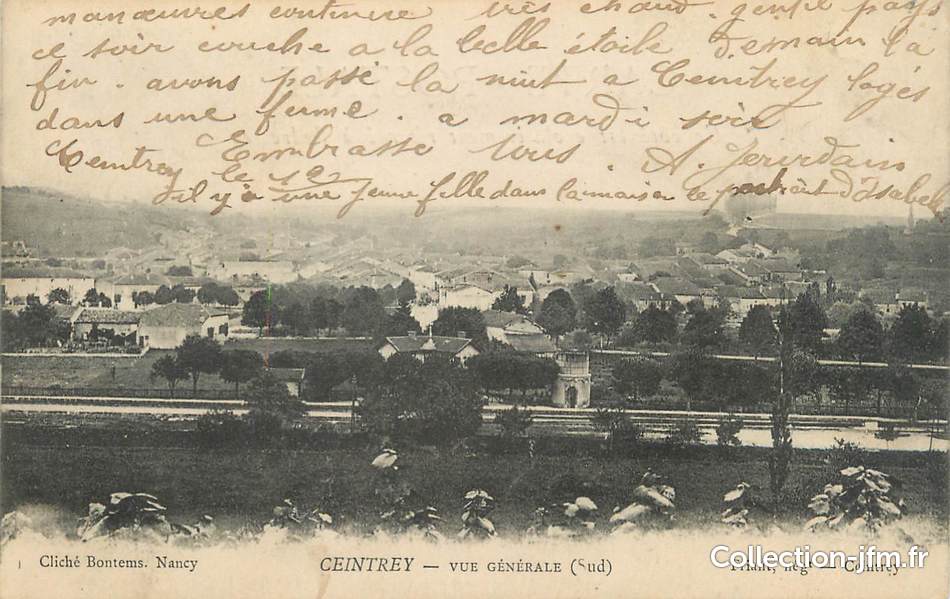 manœuvres continue très chaud. gentil pays
ce soir couche a la belle étoile demain la
fin. avons passé la nuit a Ceintrey logés
dans une ferme. a mardi soir
Embrasse tous. A. Jeurdain
Ceintrey le 12
il y a une jeune fille dans la maison le portrait d'Isabelle
Cliché Bontems. Nancy
CEINTREY — VUE GÉNÉRALE (Sud)
Friant, négt — Ceintrey
Collection-jfm.fr